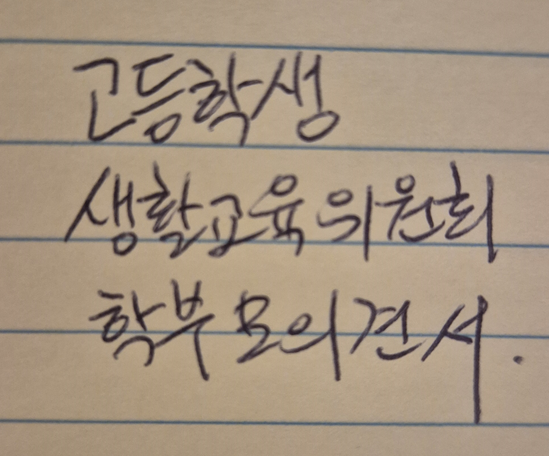 고등학생
생활교육위원회
학부모의견서.